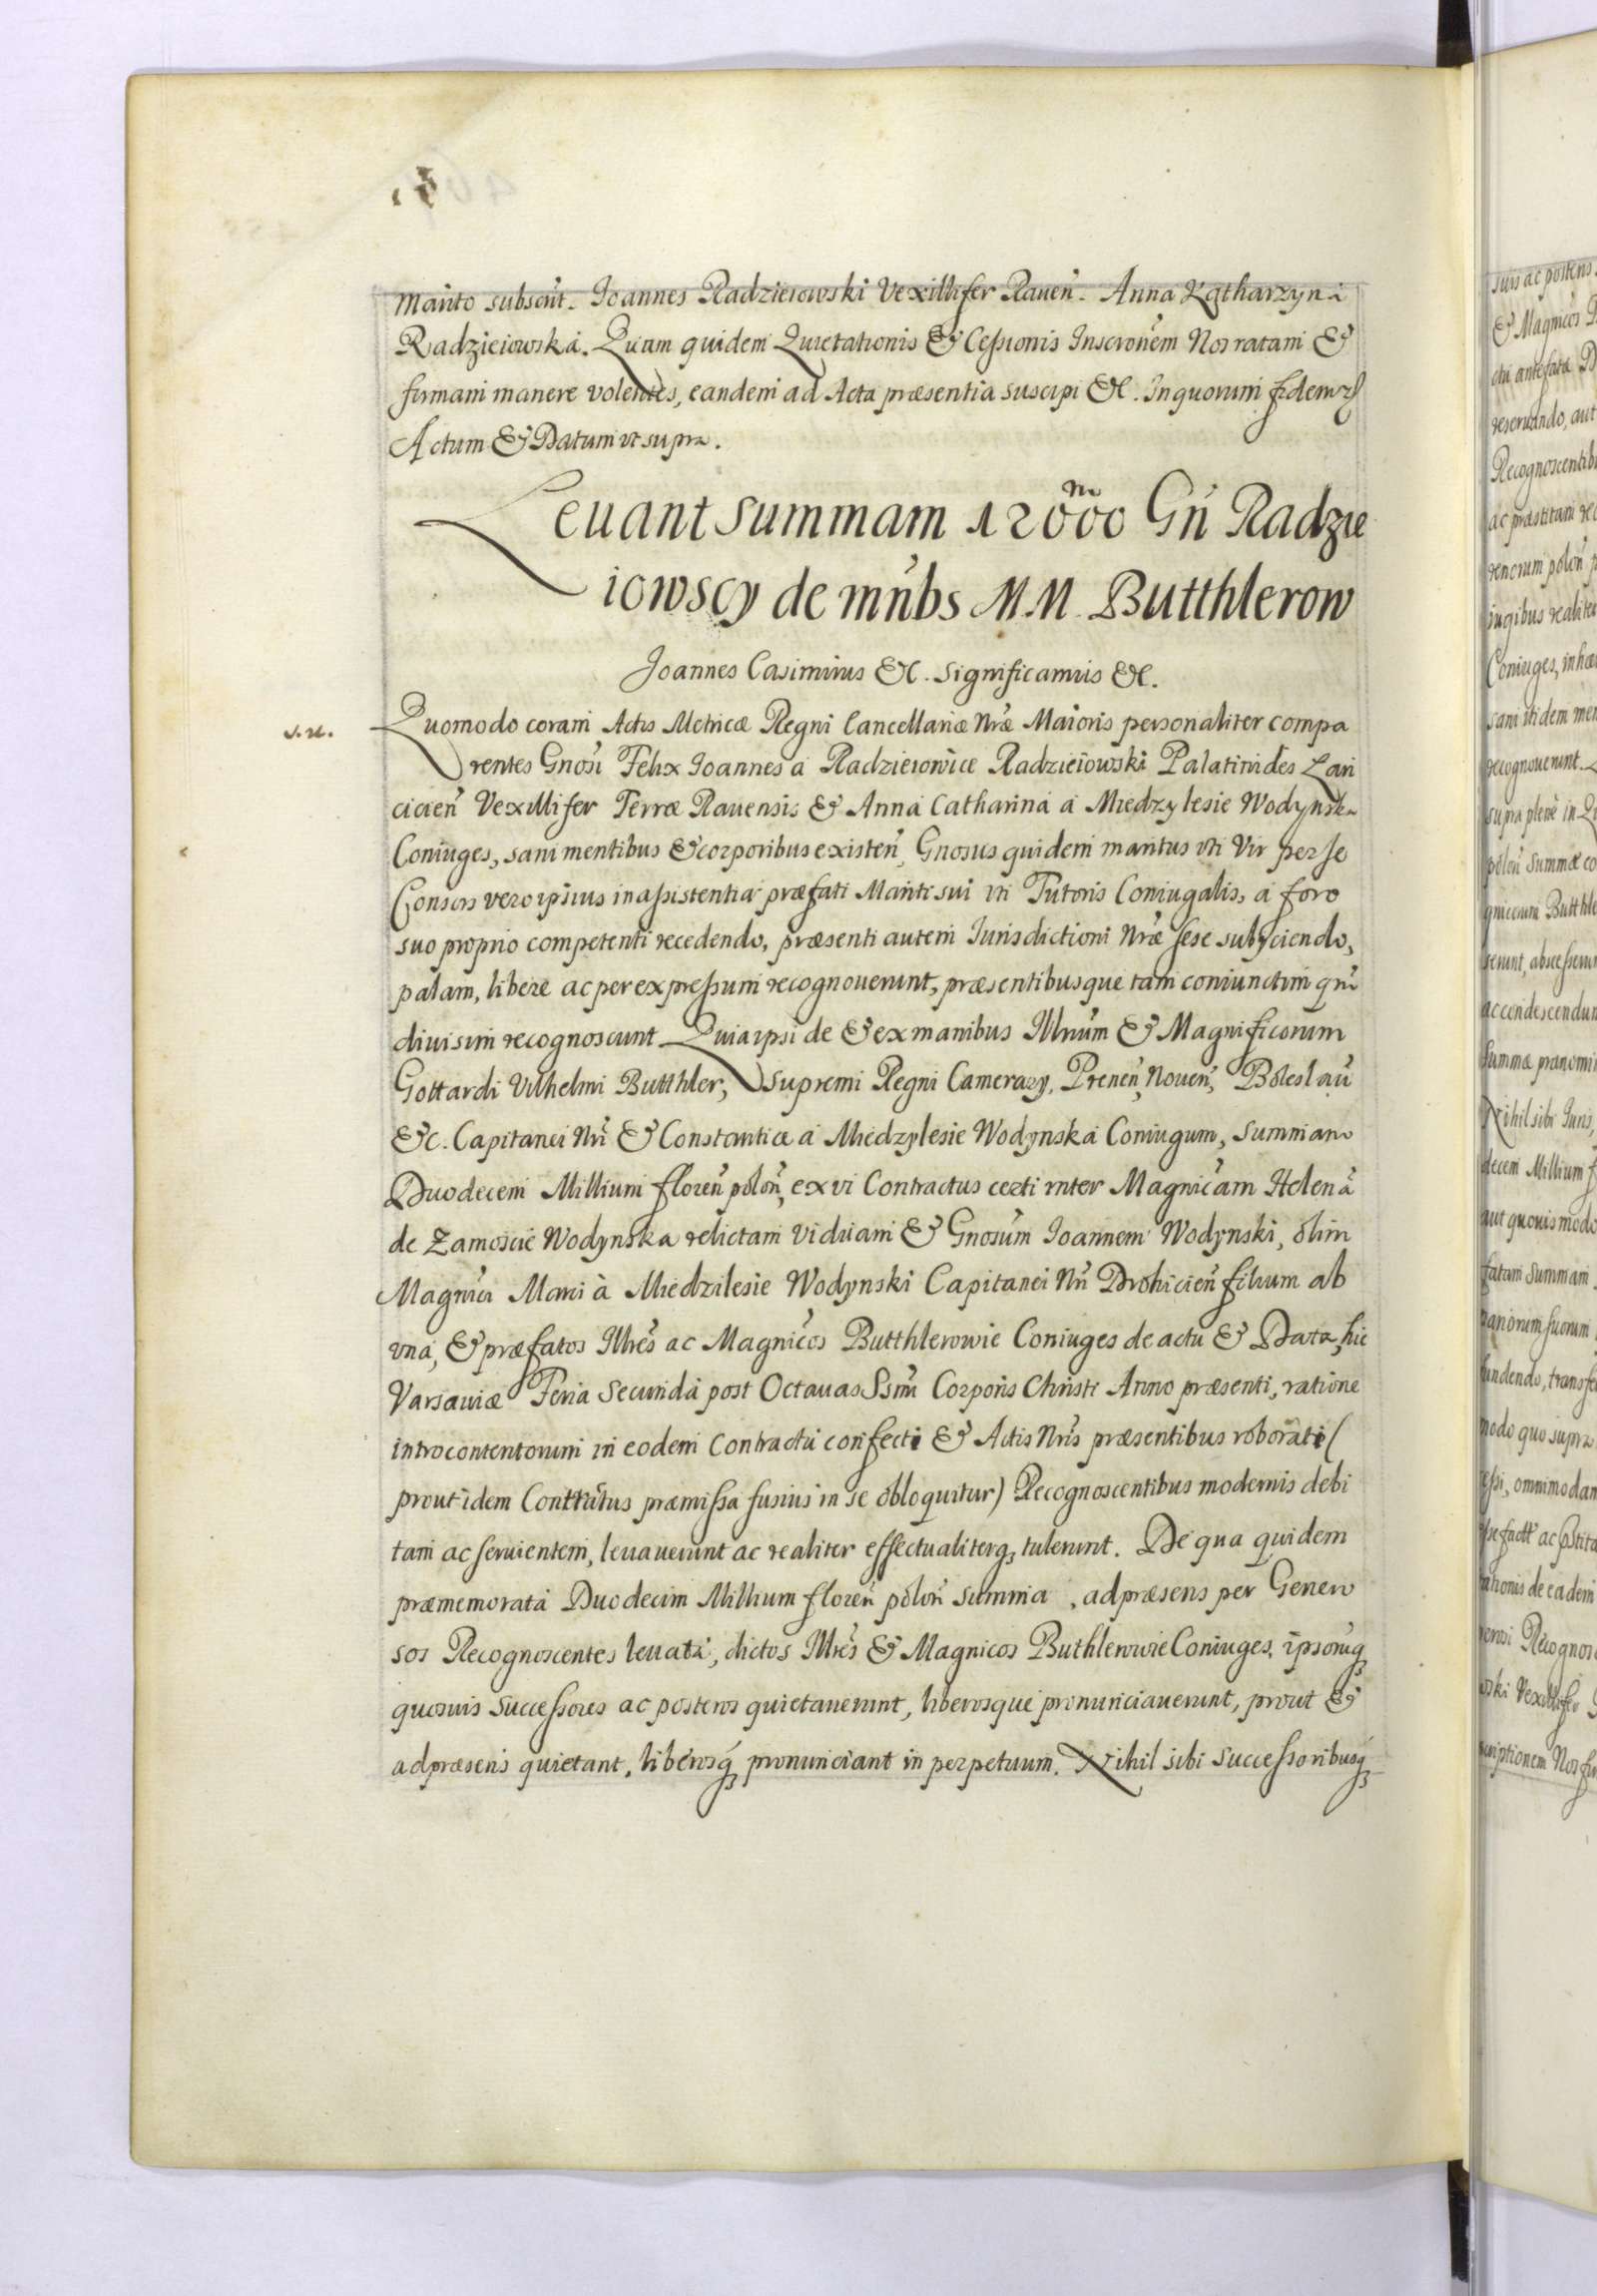 Marito subscrit. Joannes Radzieiowski Vexillifer Raueñ. Anna Katharzyna
Radzieiowska. Quam quidem Quietationis & Cessionis Inscronem Nos ratam &
firmam manere volentes, eandem ad Acta præsentia suscipi &c. In quorum fidem
Actum & Datum ut supra.
Leuant summam 12000 Gñ Radzie
iowscy de mñbs M.M. Butthlerow
Joannes Casimirus &c. significamus &c.
Quomodo coram Actis Metricæ Regni Cancellariæ Nræ Maioris personaliter compa
rentes Gnosi Felix Joannes a Radzieiowice Radzieiowski Palatinides Lan
cicieñ Vexillifer Terræ Rauensis & Anna Catharina a Miedzylesie Wodynska
Coniuges, sani mentibus & corporibus existeñ, Gnosus quidem maritus uti Vir per se
Consors vero ipsius in assistentia præfati Mariti sui uti Tutoris Coniugalis, a foro
suo proprio competenti recedendo, præsenti autem Jurisdictioni Nræ sese subyciendo,
palam, libere ac per expressum recognouerunt, præsentibusque tam coniunctim qm̃
diuisim recognoscunt Quia ipsi de & ex manibus Illrium & Magnificorum
Gottardi Vilhelmi Butthler, Supremi Regni Camerary, Preneñ, Noueñ, Boleslau
&c. Capitanei Nri & Constantiæ a Miedzylesie Wodynska Coniugum, summam
Duodecem Millium floreñ poloñ, ex vi Contractus certi inter Magnicam Helenã
de Zamoscie Wodynska relictam viduam & Gnosum Joannem Wodynski, olim
Magnici Marci à Miedzilesie Wodynski Capitanei Nri Drohicieñ filium ab
una, & præfatos Illres ac Magnicos Butthlerowie Coniuges de actu & Data hic
Varsauiæ Feria Secunda post Octauas Ssmi Corporis Christi Anno præsenti, ratione
introcontentorum in eodem Contractu confecti & Actis Nris præsentibus roborati (
prout idem Contratus præmissa fusius in se obloquitur) Recognoscentibus modernis debi
tam ac seruientem, leuauerunt ac realiter effectualiterq, tulerunt. De qua quidem
præmemorata Duodecim Millium floreñ poloñ summa, ad præsens per Genero
sos Recognoscentes leuata, dictos Illres & Magnicos Buthlerowie Coniuges, ipsorũq
quosuis successores ac posteros quietauerunt, liberosque pronunciauerunt, prout &
ad præsens quietant, liberosq, pronunciant in perpetuum. Nihil sibi successoribusq,